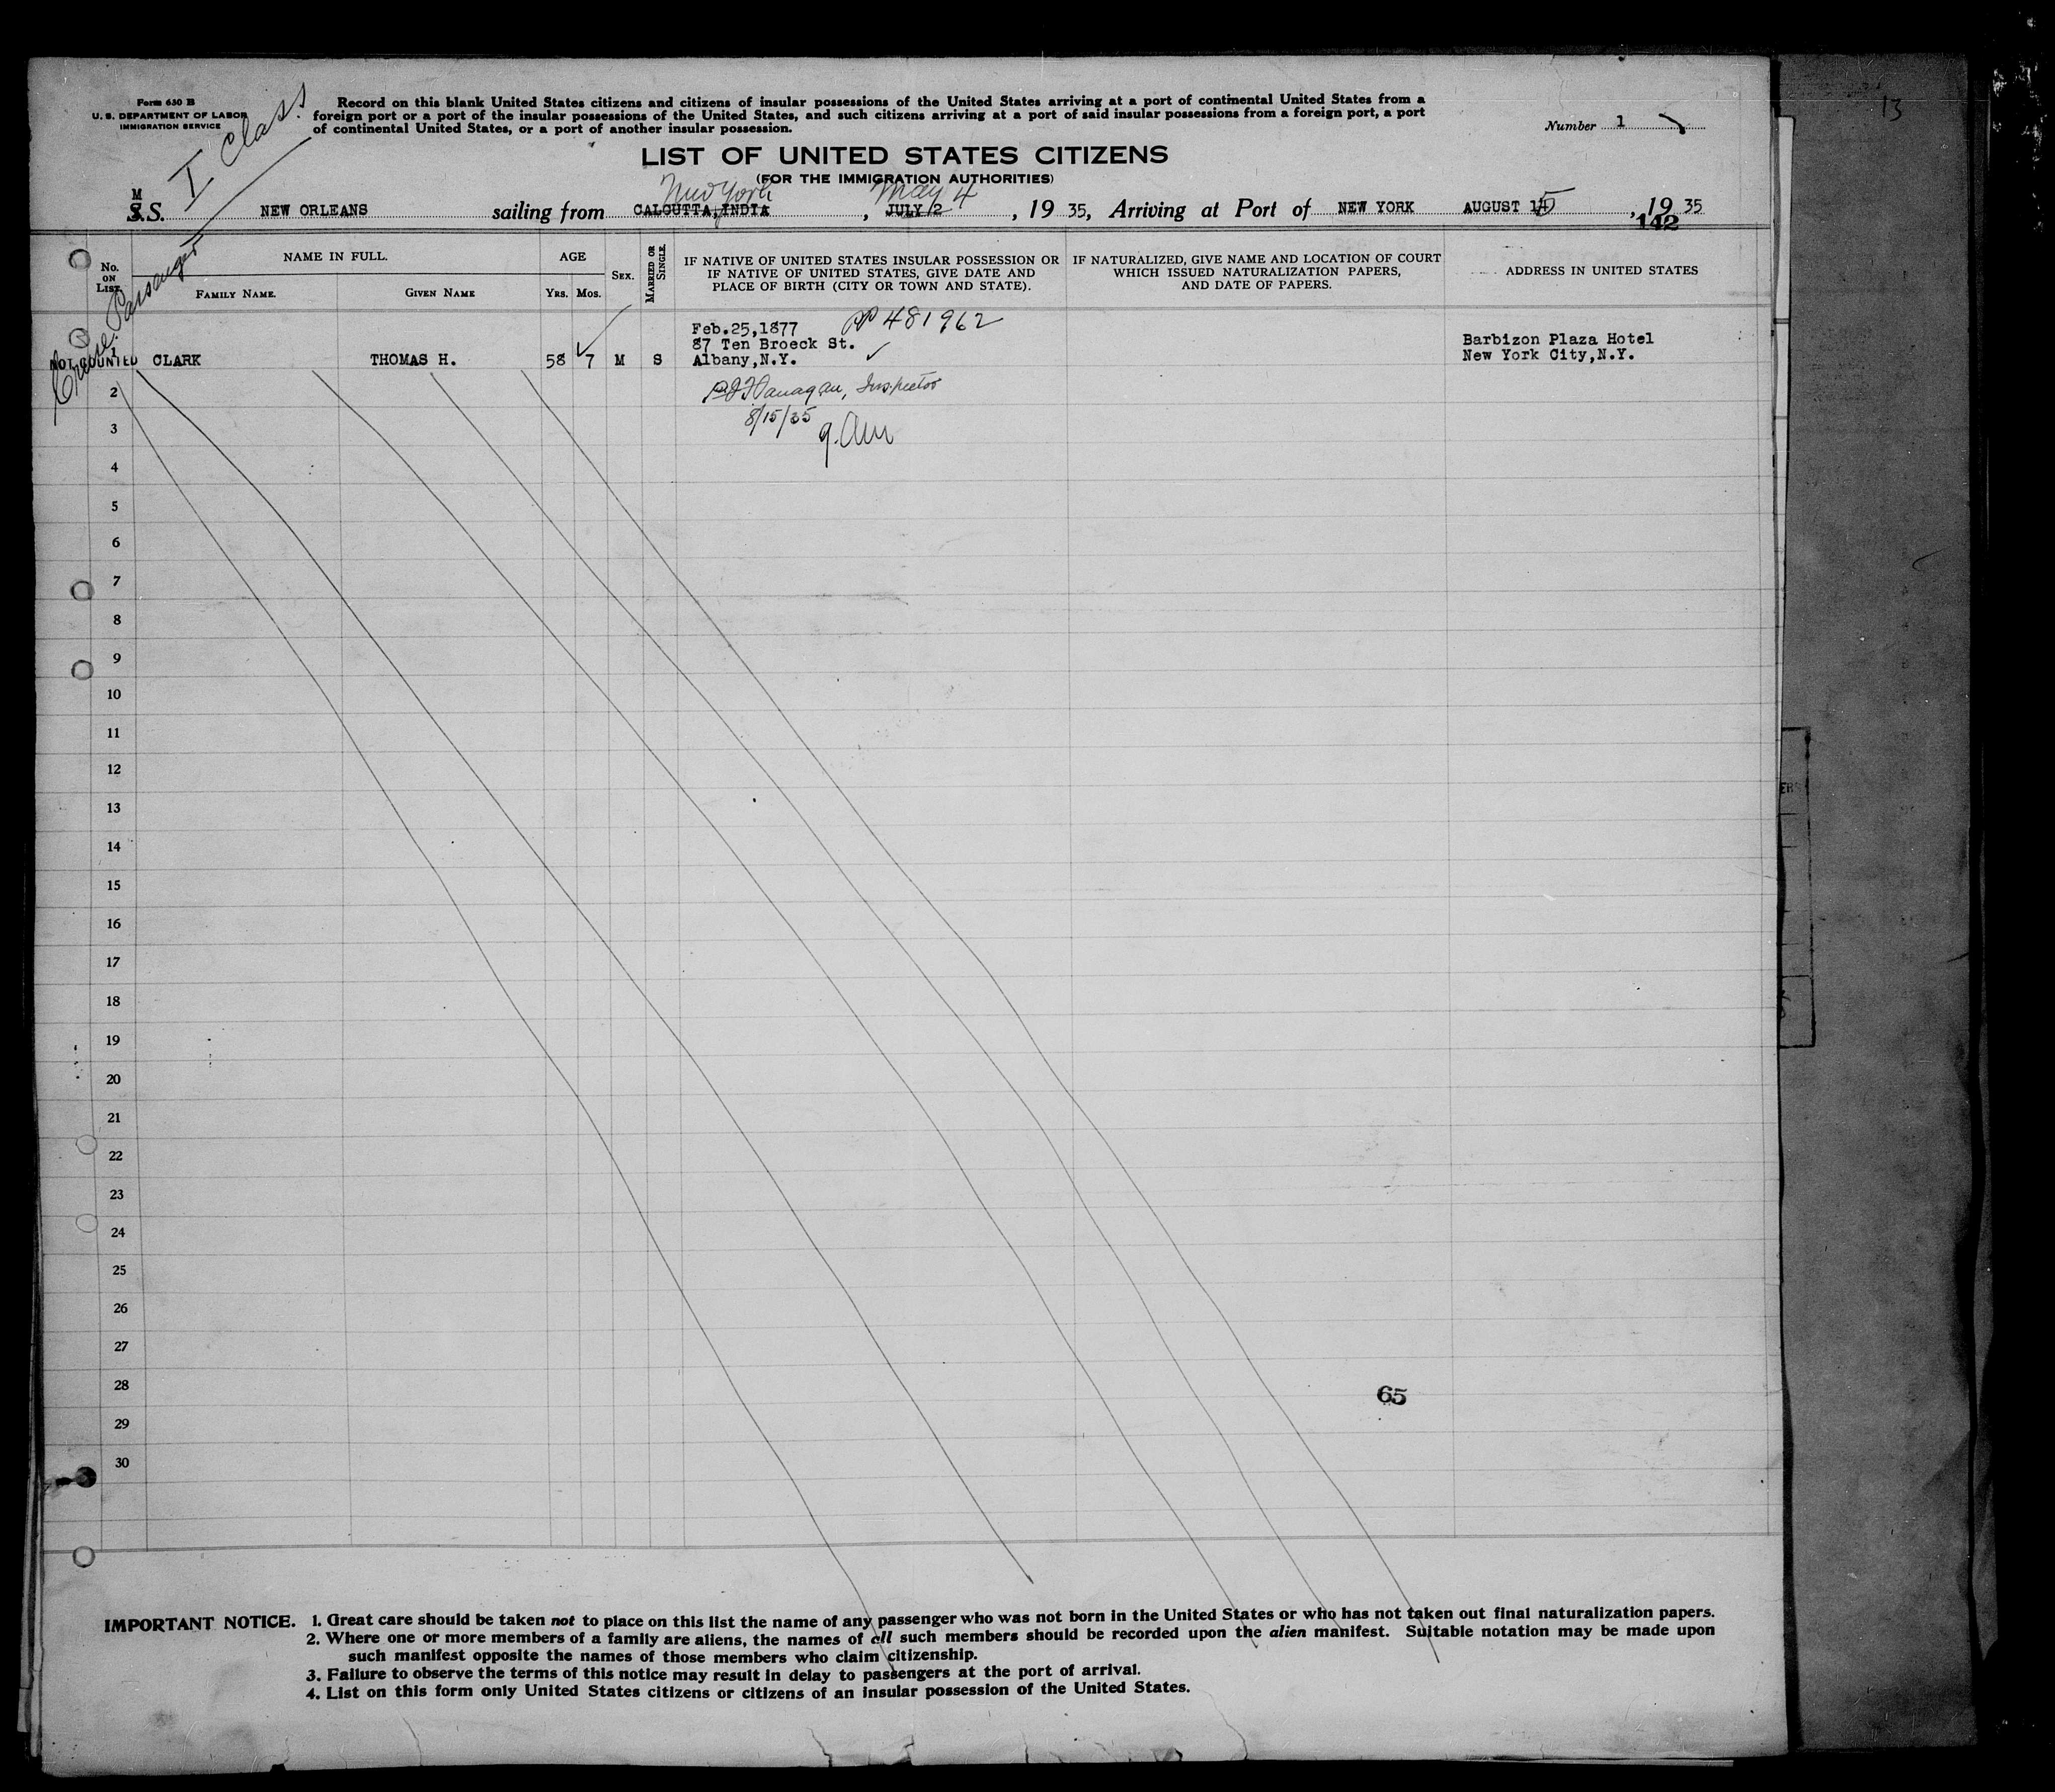 13
Form 630 B
U. S. DEPARTMENT OF LABOR
IMMIGRATION SERVICE
I Class
Record on this blank United States citizens and citizens of insular possessions of the United States arriving at a port of continental United States from a
foreign port or a port of the insular possessions of the United States, and such citizens arriving at a port of said insular possessions from a foreign port, a port
of continental United States, or a port of another insular possession.
Number 1
LIST OF UNITED STATES CITIZENS
(FOR THE IMMIGRATION AUTHORITIES)
New York May 4
M
S.S. NEW ORLEANS sailing from CALCUTTA, INDIA, JULY 2, 1935, Arriving at Port of NEW YORK AUGUST 15, 1935
142
Cruise Passenger
No. on List.
NAME IN FULL.
FAMILY NAME.
GIVEN NAME
AGE
YRS.
MOS.
SEX.
MARRIED OR SINGLE.
IF NATIVE OF UNITED STATES INSULAR POSSESSION OR
IF NATIVE OF UNITED STATES, GIVE DATE AND
PLACE OF BIRTH (CITY OR TOWN AND STATE).
IF NATURALIZED, GIVE NAME AND LOCATION OF COURT
WHICH ISSUED NATURALIZATION PAPERS,
AND DATE OF PAPERS.
ADDRESS IN UNITED STATES
Feb.25,1877 PP 481962
87 Ten Broeck St.
Barbizon Plaza Hotel
1
NOT COUNTED CLARK THOMAS H. 58 7 M S Albany,N.Y. New York City,N.Y.
2 Flanagan, Inspector
8/15/35
3
4
5
6
7
8
9
10
11
12
13
14
15
16
17
18
19
20
21
22
23
24
25
26
27
28
65
29
30
IMPORTANT NOTICE. 1. Great care should be taken not to place on this list the name of any passenger who was not born in the United States or who has not taken out final naturalization papers.
2. Where one or more members of a family are aliens, the names of all such members should be recorded upon the alien manifest. Suitable notation may be made upon
such manifest opposite the names of those members who claim citizenship.
3. Failure to observe the terms of this notice may result in delay to passengers at the port of arrival.
4. List on this form only United States citizens or citizens of an insular possession of the United States.